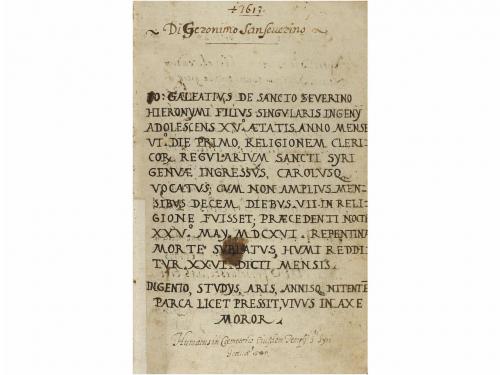 +1613
~ Di Geronimo Sanseverino ~
IO: GALEATIVS DE SANCTO SEVERINO
HIERONYMI FILIVS SINGVLARIS INGENY
ADOLESCENS XV. ÆTATIS, ANNO MENSE
VI. DIE PRIMO, RELIGIONEM CLERI-
COR REGVLARIVM SANCTI SYRI
GENVÆ INGRESSVS, CAROLVSQ
VOCATVS; CVM NON AMPLIVS MEN-
SIBVS DECEM, DIEBVS VII IN RELI-
GIONE FVISSET; PRÆCEDENTI NOCTE
XXV. MAY, MDCXVI. REPENTINA
MORTE SVBLATVS, HVMI REDDI-
TVR. XXVI. DICTI MENSIS.
INGENIO, STVDYS, ARIS, ANNISQ NITENTE
PARCA LICET PRESSIT, VIVVS IN AXE
MOROR.
Humatus in